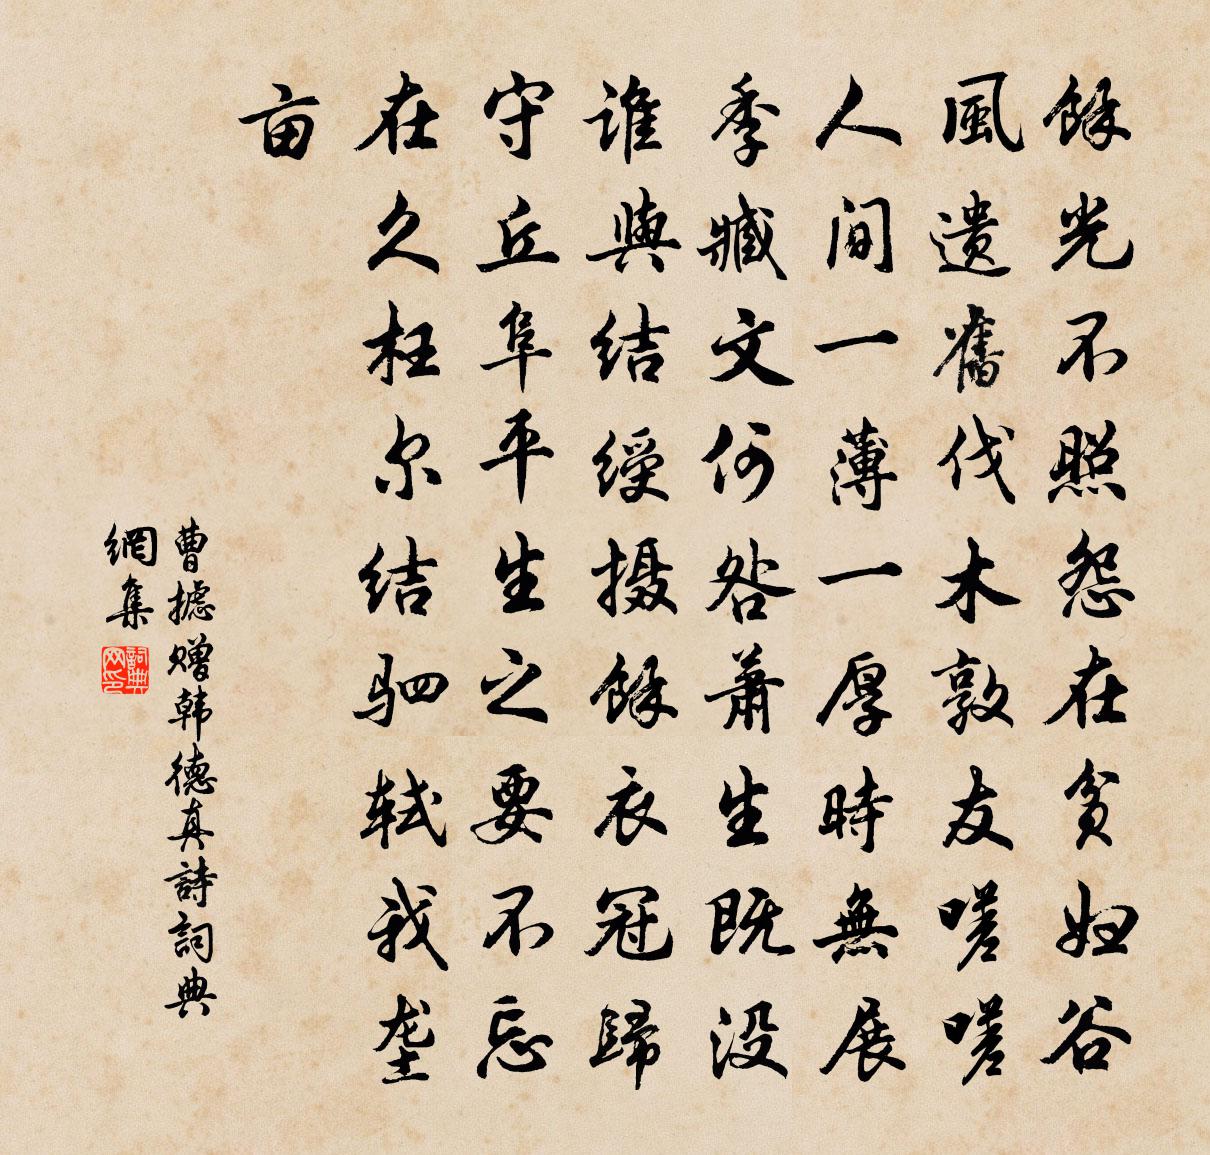 餘光不照怨在貧妇谷
風遺舊伐木敦友嗟嗟
人间一薄一厚時無展
季臧文何咎萧生既没
谁與结綬摄餘衣冠歸
守丘阜平生之要不忘
在久枉尔结驷轼我垄
亩
曹摅赠韩德真詩詞典
網集
詞典网印